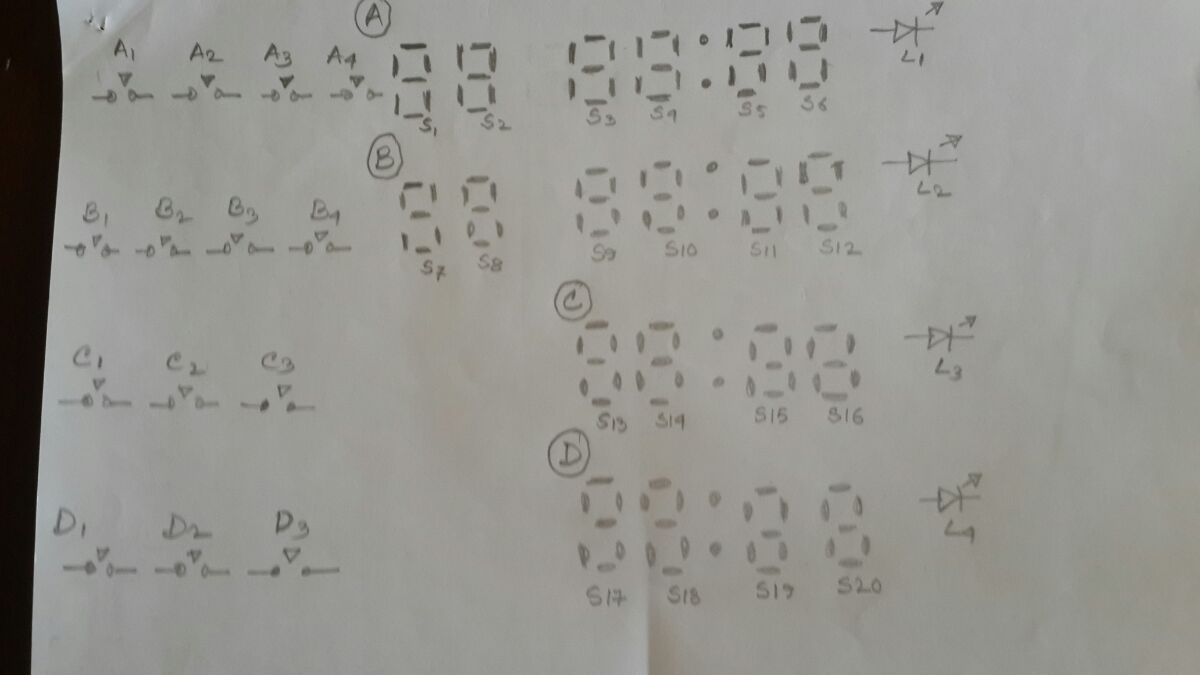 A
A1 A2 A3 A4
S1 S2 S3 S4 S5 S6 L1
B
B1 B2 B3 B4
S7 S8 S9 S10 S11 S12 L2
C
C1 C2 C3
S13 S14 S15 S16 L3
D
D1 D2 D3
S17 S18 S19 S20 L4